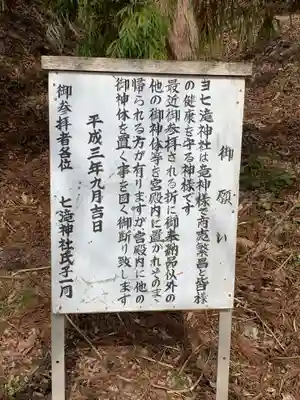 御願い
当七滝神社は滝神様で商売繁昌と皆様
の健康を守る神様です
最近御参拝される折に御奉納品以外の
他の御神体等を宮殿内に置かれそのまゝ
帰られる方が有りますが宮殿内に他の
御神体を置く事を固く御断り致します
平成三年九月吉日
七滝神社氏子一同
御参拝者各位